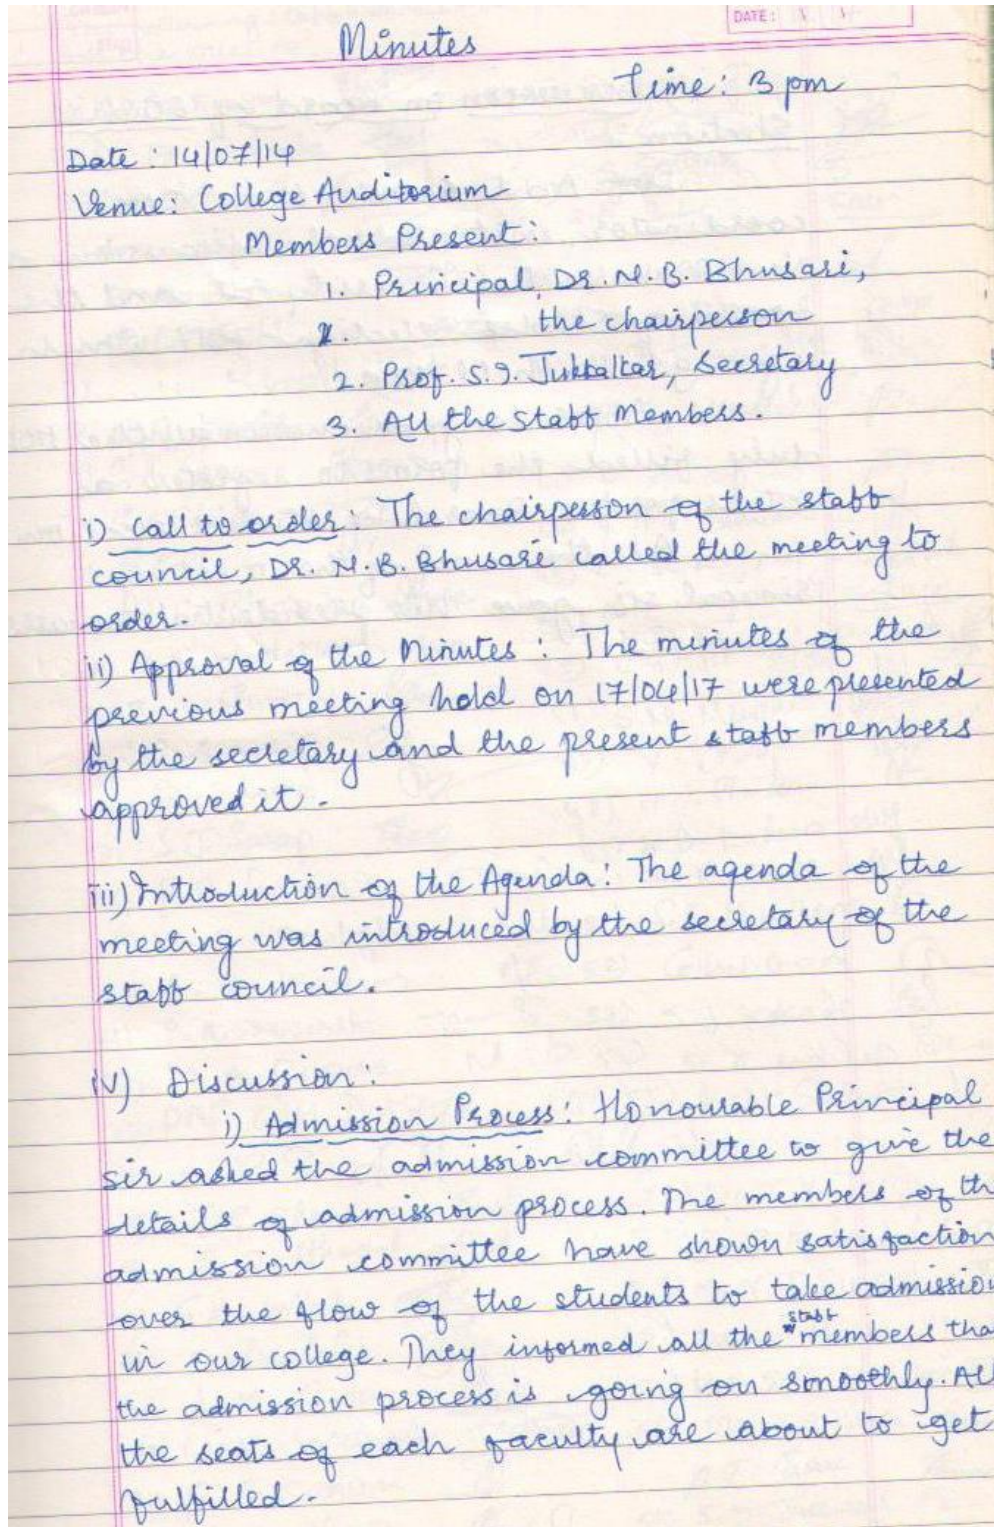 DATE:
Minutes
Time: 3 pm
Date: 14/07/14
Venue: College Auditorium
Members Present:
1. Principal, Dr. M.B. Bhusari,
the chairperson
2. Prof. S.I. Secretary
3. All the staff members.
i) Call to order: The chairperson of the staff
council, Dr. M.B. Bhusari called the meeting to
order.
ii) Approval of the Minutes: The minutes of the
previous meeting held on 17/04/17 were presented
by the secretary and the present staff members
approved it.
iii) Introduction of the Agenda: The agenda of the
meeting was introduced by the secretary of the
staff council.
iv) Discussion:
i) Admission Process: Honourable Principal
sir asked the admission committee to give the
details of admission process. The members of th
admission committee have shown satisfaction
over the flow of the students to take admission
in our college. They informed all the staff members tha
the admission process is going on smoothly. All
the seats of each faculty are about to get
fulfilled.